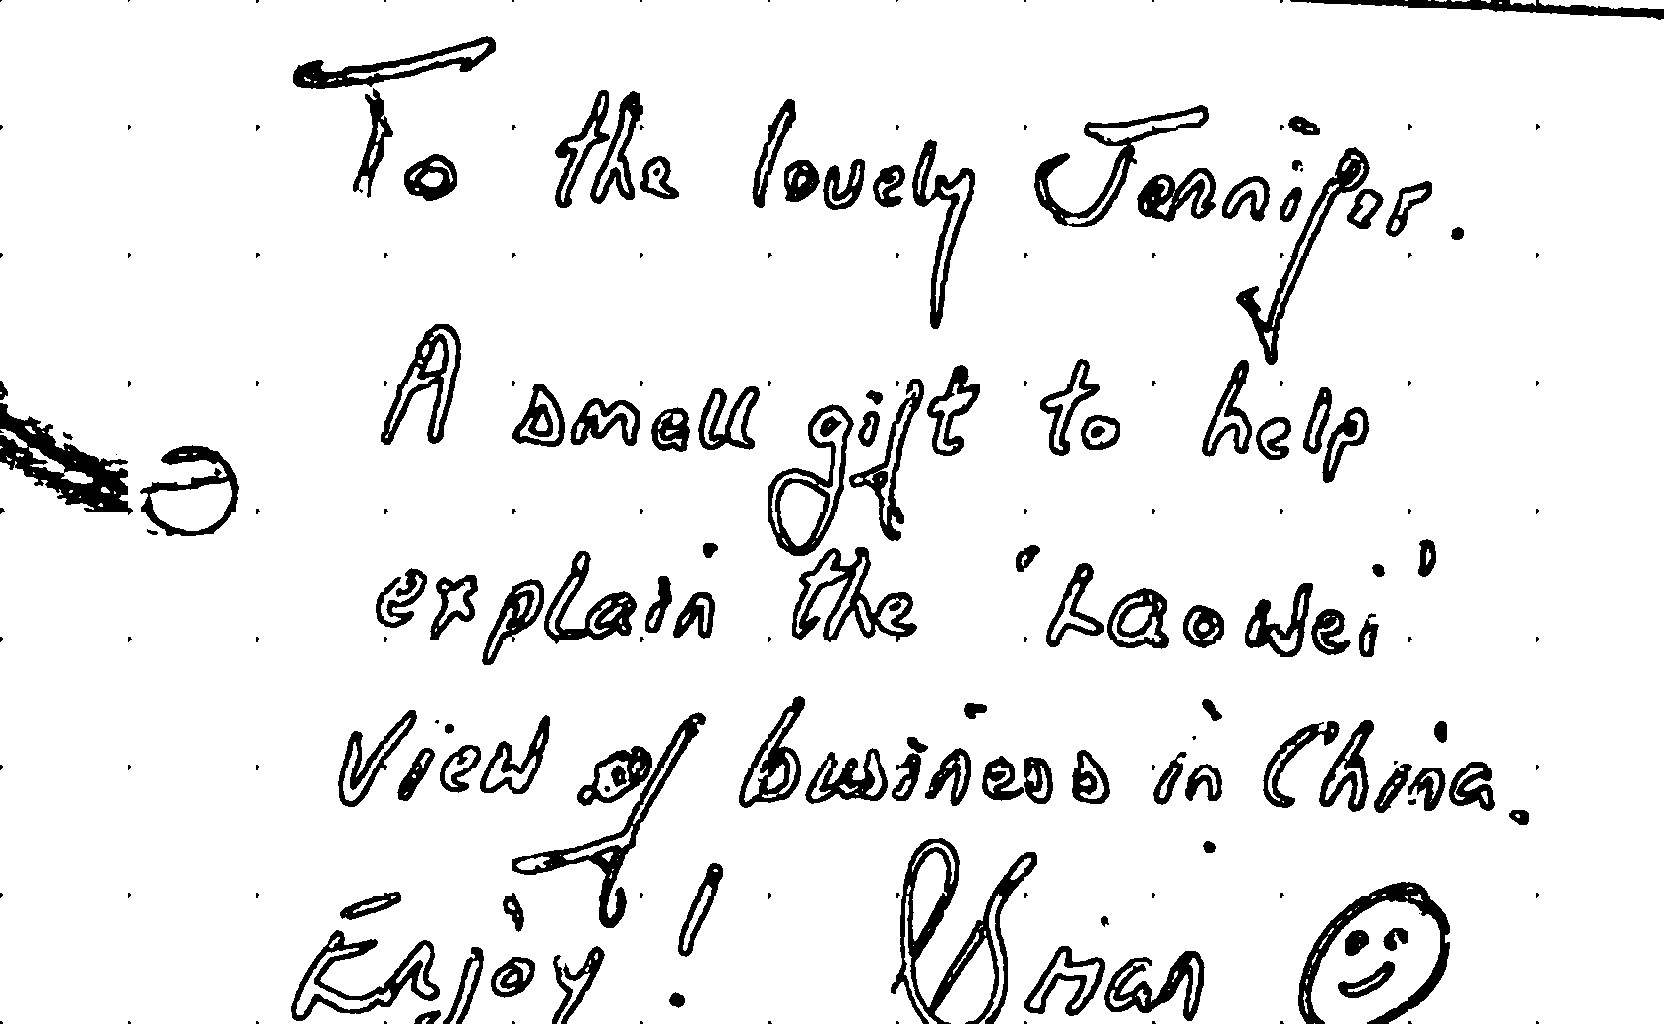 To the lovely Jennifer.
A small gift to help
explain the 'Laowei'
view of business in China.
Enjoy! Brian